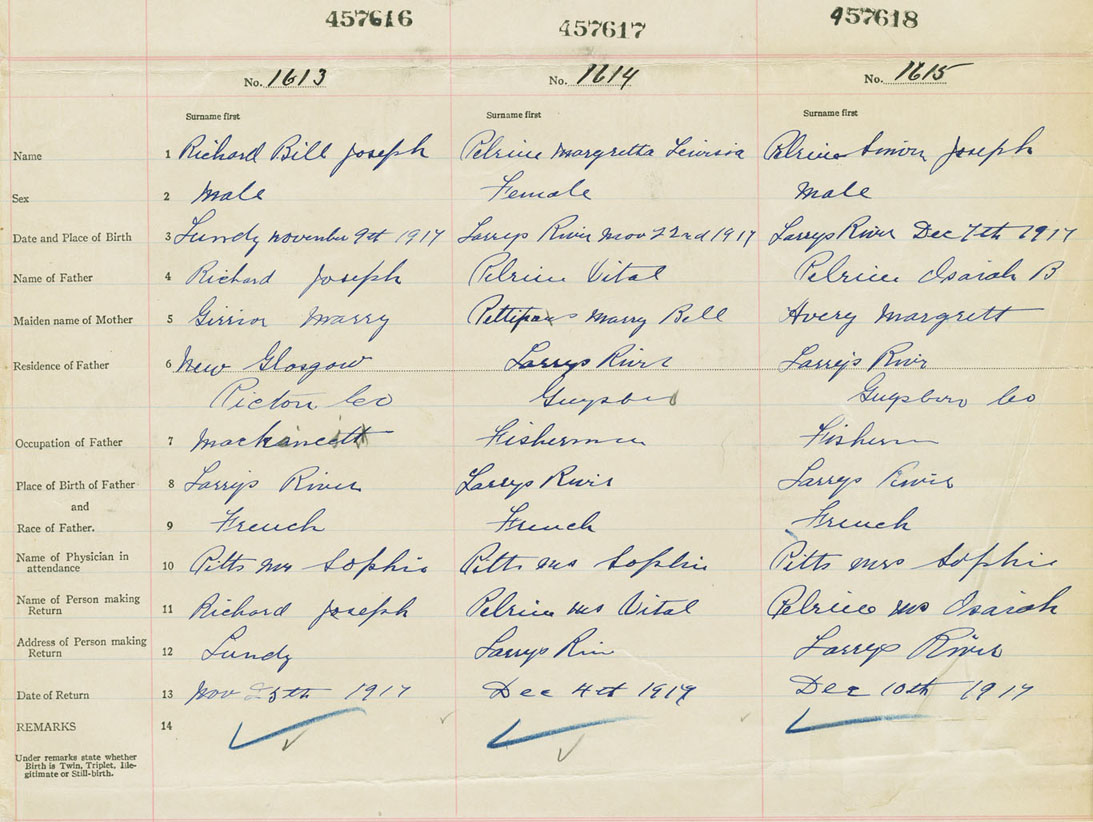 457616 457617 457618
No. 1613 No. 1614 No. 1615
Surname first Surname first Surname first
Name 1 Richard Bill Joseph Pelrine Margretta Pelrine Simon Joseph
Sex 2 Male Female Male
Date and Place of Birth 3 Lundy November 9th 1917 Larrys River Nov 22nd 1917 Larrys River Dec 7th 1917
Name of Father 4 Richard Joseph Pelrine Vital Pelrine Isaiah B
Maiden name of Mother 5 Girrior Marry Pettipas Marry Bell Avery Margrett
Residence of Father 6 New Glasgow Larrys River Larrys River
Pictou Co Guysboro Guysboro Co
Occupation of Father 7 Fisherman Fisherman
Place of Birth of Father 8 Larrys River Larrys River Larrys River
and
Race of Father. 9 French French French
Name of Physician in
attendance 10 Pitts Mrs Sophie Pitts Ms Sophie Pitts Mrs Sophie
Name of Person making
Return 11 Richard Joseph Pelrine Ms Vital Pelrine Ms Isaiah
Address of Person making
Return 12 Lundy Larrys Riv Larrys River
Date of Return 13 Nov 25th 1917 Dec 4th 1917 Dec 10th 1917
REMARKS 14
Under remarks state whether
Birth is Twin, Triplet, Ille-
gitimate or Still-birth.